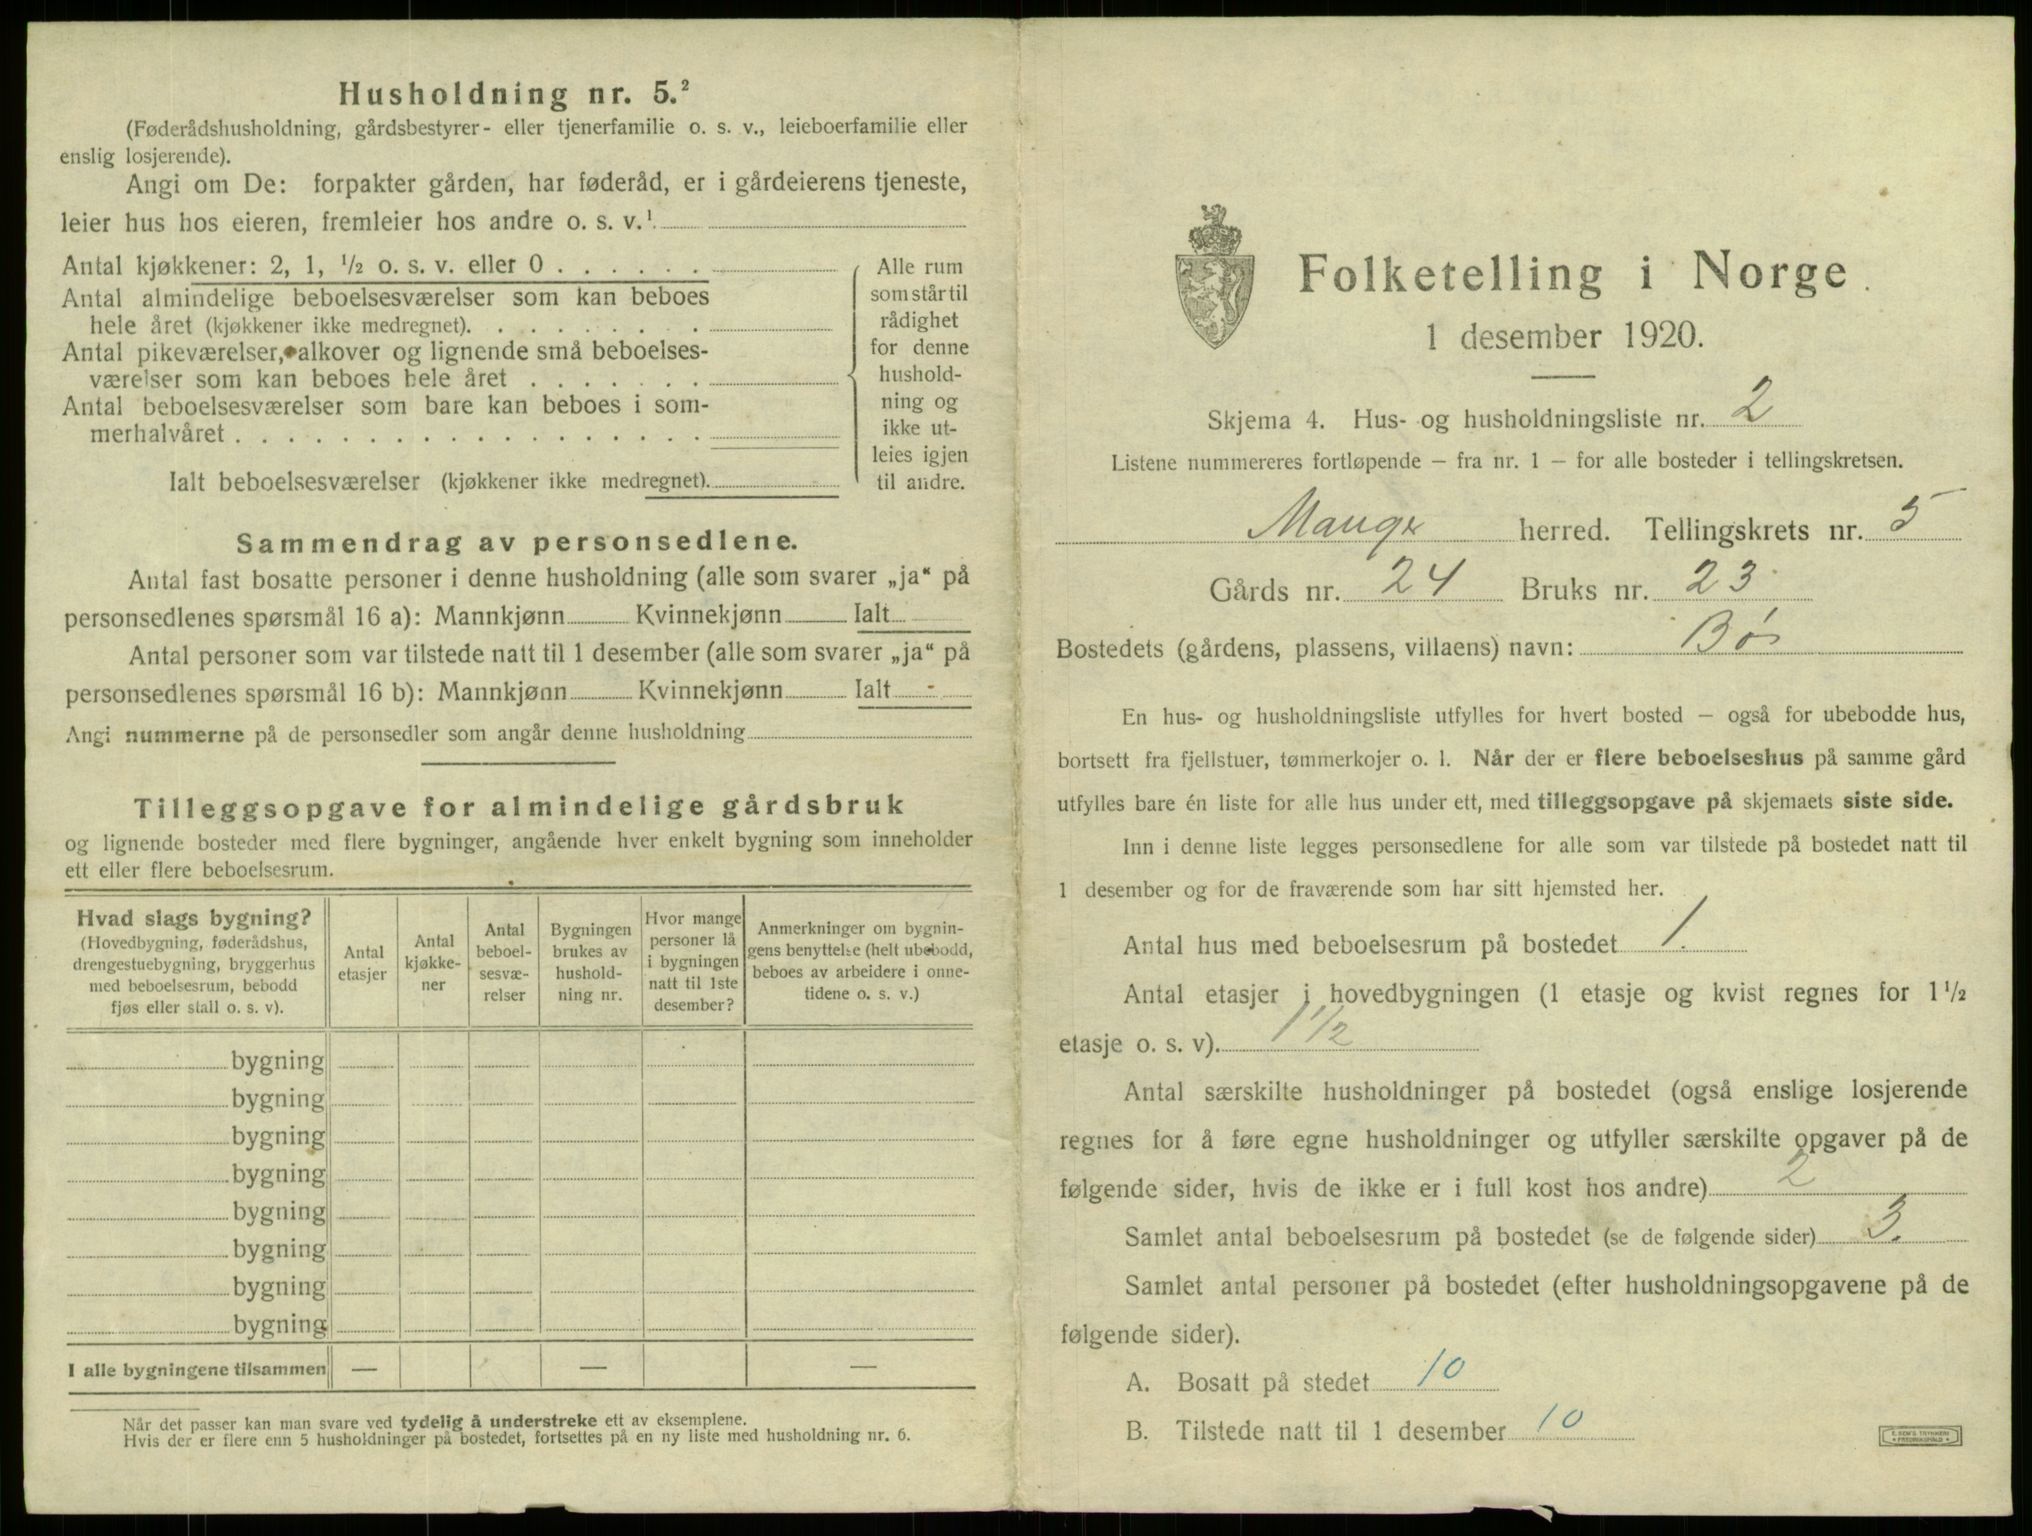 Husholdning nr. 5.²
(Føderådshusholdning, gårdsbestyrer- eller tjenerfamilie o. s. v., leieboerfamilie eller
enslig losjerende).
Angi om De: forpakter gården, har føderåd, er i gårdeierens tjeneste,
leier hus hos eieren, fremleier hos andre o. s. v.¹
Antal kjøkkener: 2, 1, ½ o. s. v. eller 0 . . . . . .
Antal almindelige beboelsesværelser som kan beboes
hele året (kjøkkener ikke medregnet). . . . . . . . .
Antal pikeværelser, alkover og lignende små beboelses-
værelser som kan beboes hele året . . . . . . .
Antal beboelsesværelser som bare kan beboes i som-
merhalvåret . . . . . . . . . . . . . . . . . .
Ialt beboelsesværelser (kjøkkener ikke medregnet).
Alle rum
som står til
rådighet
for denne
hushold-
ning og
ikke ut-
leies igjen
til andre.
Sammendrag av personsedlene.
Antal fast bosatte personer i denne husholdning (alle som svarer „ja“ på
personsedlenes spørsmål 16 a): Mannkjønn Kvinnekjønn Ialt
Antal personer som var tilstede natt til 1 desember (alle som svarer „ja“ på
personsedlenes spørsmål 16 b): Mannkjønn Kvinnekjønn Ialt
Angi nummerne på de personsedler som angår denne husholdning
Tilleggsopgave for almindelige gårdsbruk
og lignende bosteder med flere bygninger, angående hver enkelt bygning som inneholder
ett eller flere beboelsesrum.
Hvad slags bygning?
(Hovedbygning, føderådshus,
drengestuebygning, bryggerhus
med beboelsesrum, bebodd
fjøs eller stall o. s. v).
Antal
etasjer
Antal
kjøkke-
ner
Antal
beboel-
sesvæ-
relser
Bygningen
brukes av
hushold-
ning nr.
Hvor mange
personer lå
i bygningen
natt til 1ste
desember?
Anmerkninger om bygnin-
gens benyttelse (helt ubebodd,
beboes av arbeidere i onne-
tidene o. s. v.)
bygning
bygning
bygning
bygning
bygning
bygning
bygning
bygning
I alle bygningene tilsammen — — —
Når det passer kan man svare ved tydelig å understreke ett av eksemplene.
Hvis der er flere enn 5 husholdninger på bostedet, fortsettes på en ny liste med husholdning nr. 6.
Folketelling i Norge
1 desember 1920.
Skjema 4. Hus- og husholdningsliste nr. 2
Listene nummereres fortløpende – fra nr. 1 – for alle bosteder i tellingskretsen.
Manger herred. Tellingskrets nr. 5
Gårds nr. 24 Bruks nr. 23
Bostedets (gårdens, plassens, villaens) navn: Bø
En hus- og husholdningsliste utfylles for hvert bosted – også for ubebodde hus,
bortsett fra fjellstuer, tømmerkojer o. l. Når der er flere beboelseshus på samme gård
utfylles bare én liste for alle hus under ett, med tilleggsopgave på skjemaets siste side.
Inn i denne liste legges personsedlene for alle som var tilstede på bostedet natt til
1 desember og for de fraværende som har sitt hjemsted her.
Antal hus med beboelsesrum på bostedet 1.
Antal etasjer i hovedbygningen (1 etasje og kvist regnes for 1 ½
etasje o. s. v). 1½
Antal særskilte husholdninger på bostedet (også enslige losjerende
regnes for å føre egne husholdninger og utfyller særskilte opgaver på de
følgende sider, hvis de ikke er i full kost hos andre) 2
Samlet antal beboelsesrum på bostedet (se de følgende sider) 3.
Samlet antal personer på bostedet (efter husholdningsopgavene på de
følgende sider).
A. Bosatt på stedet 10
B. Tilstede natt til 1 desember 10